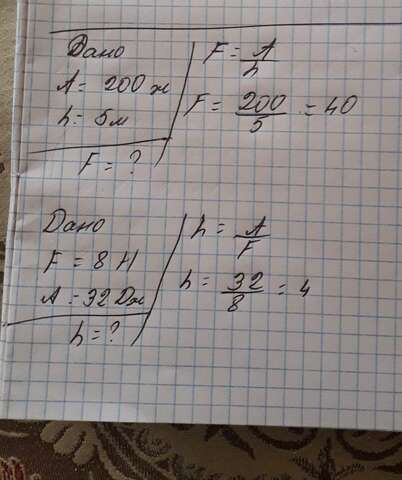 Дано
A = 200 ж
h = 5м
F = ?
F = A/h
F = 200/5 = 40
Дано
F = 8 Н
A = 32 Дж
h = ?
h = A/F
h = 32/8 = 4